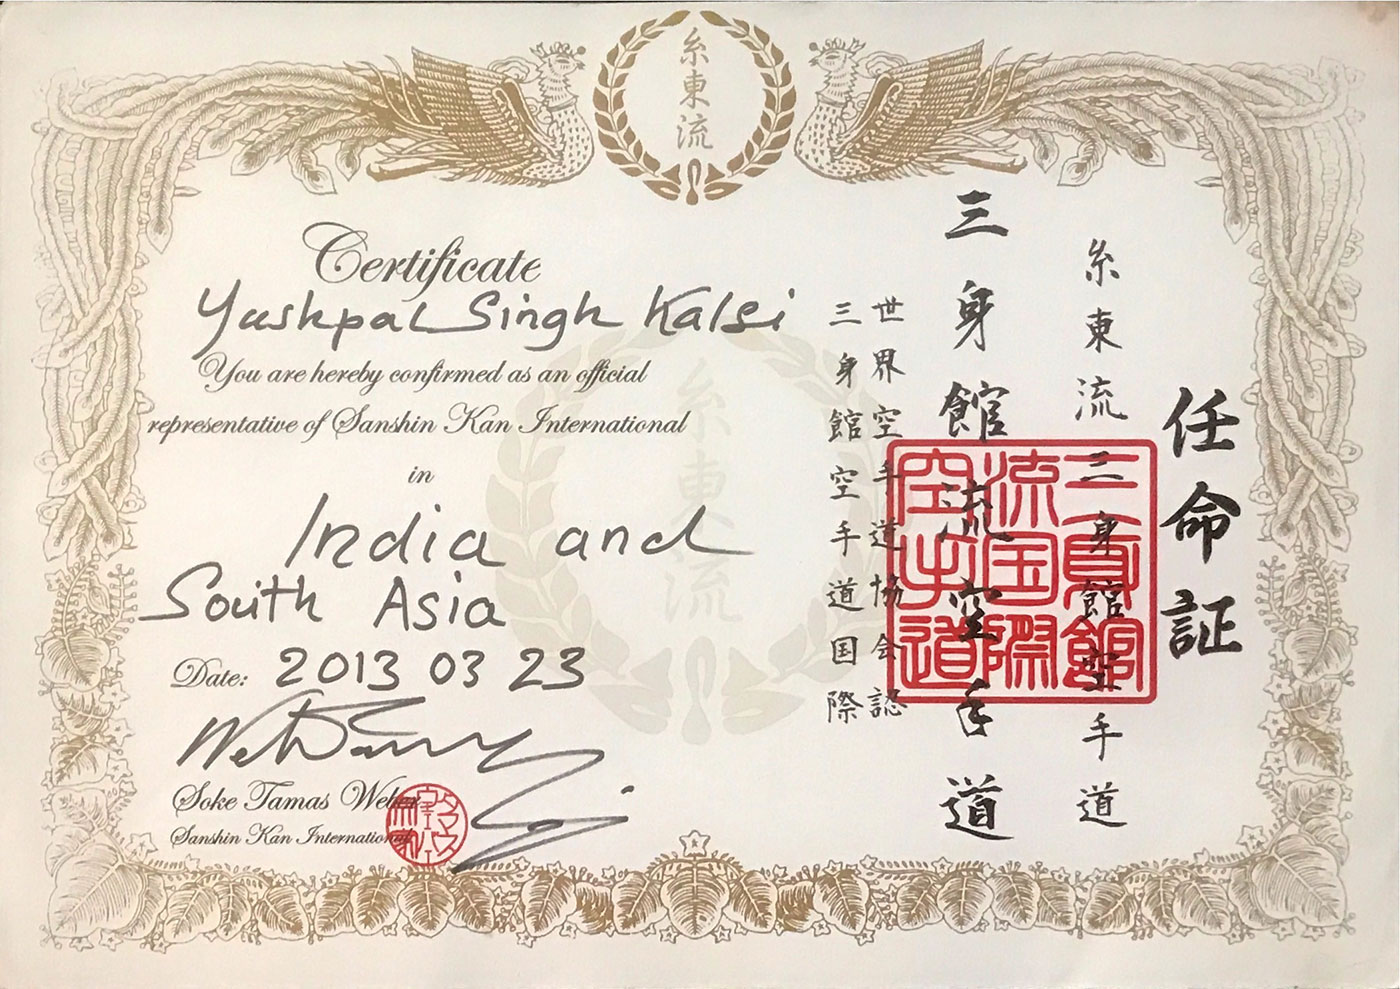 糸東流
Certificate
Yashpal Singh Kalsi
You are hereby confirmed as an official
representative of Sanshin Kan International
in
India and
South Asia
Date: 2013 03 23
Soke Tamas Weber
Sanshin Kan International
糸東流
任命証
糸東流三身館空手道
三身館流空手道
世界空手道協会認
三身館空手道国際
三身館
流国際
空手道